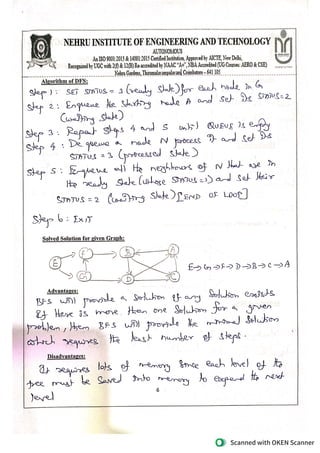 NEHRU INSTITUTE OF ENGINEERING AND TECHNOLOGY
AUTONOMOUS
An ISO 9001:2015 & 14001:2015 Certified Institution, Approved by AICTE, New Delhi,
Recognized by UGC with 2(f) & 12(B) Re accredited by NAAC "A+", NBA Accredited (UG Courses: AERO & CSE)
Nehru Gardens, Thirumalayampalayam, Coimbatore – 641 105
Algorithm of DFS:
Step 1: SET STATUS = 1 (ready state) for each node in G
Step 2: Enqueue the starting node A and set its STATUS=2
(waiting state)
Step 3: Repeat Steps 4 and 5 until QUEUE is empty
Step 4: Dequeue a node N process it and set its
STATUS = 3 (processed state)
Step 5: Enqueue all the neighbours of N that are in
the ready state (whose STATUS=1) and set their
STATUS = 2 (waiting state) [END OF LOOP]
Step 6: EXIT
Solved Solution for given Graph:
E F G B D A C
E→G→F→D→B→C→A
Advantages:
BFS will provide a solution if any solution exists
If there is more than one solution for a given
problem, then BFS will provide the minimal solution
which requires the least number of steps.
Disadvantages:
It requires lots of memory since each level of the
tree must be saved into memory to expand the next
level
6
Scanned with OKEN Scanner